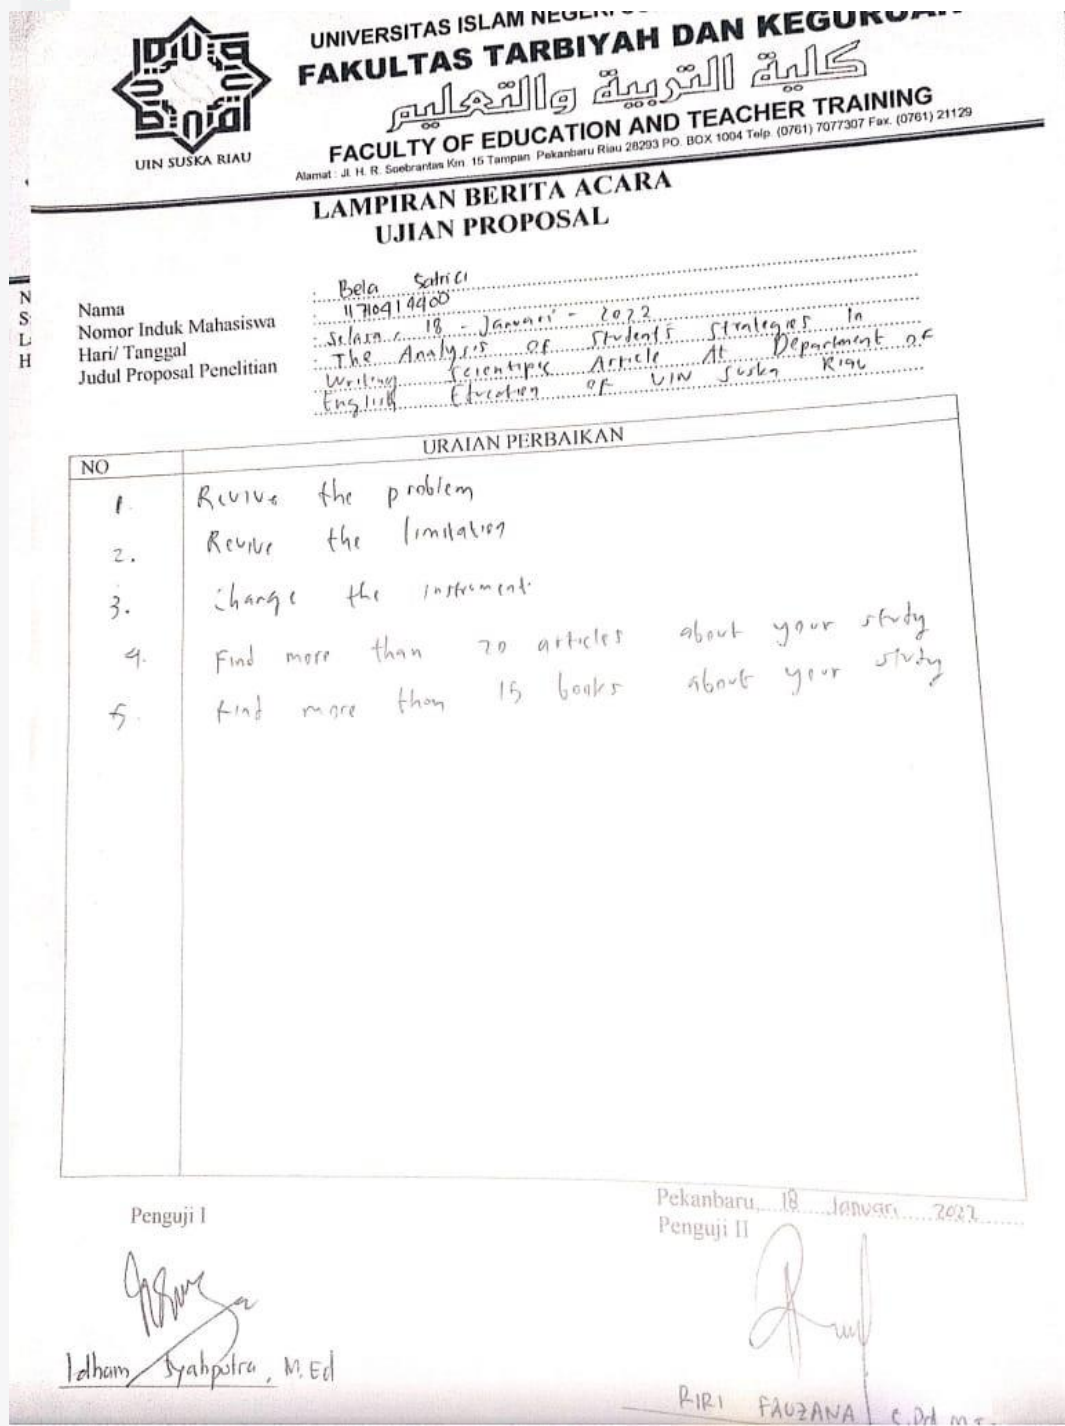 UNIVERSITAS ISLAM NEGERI
FAKULTAS TARBIYAH DAN KEGURUAN
كلية التربية والتعليم
FACULTY OF EDUCATION AND TEACHER TRAINING
Alamat : Jl. H. R. Soebrantas Km. 15 Tampan Pekanbaru Riau 28293 PO. BOX 1004 Telp. (0761) 7077307 Fax. (0761) 21129
UIN SUSKA RIAU
LAMPIRAN BERITA ACARA
UJIAN PROPOSAL
N
S
L
H
Nama : Bela Satrici
Nomor Induk Mahasiswa : 11710414400
Hari/ Tanggal : Selasa, 18 - Januari - 2022
Judul Proposal Penelitian : The Analysis of Students Strategies In
Writing Scientific Article At Department of
English Education of UIN Suska Riau
NO URAIAN PERBAIKAN
1. Revive the problem
2. Revive the limitation
3. Change the instrument.
4. Find more than 20 articles about your study
5. Find more than 15 books about your study
Pekanbaru, 18 Januari 2022
Penguji I Penguji II
Idham Syahputra, M.Ed
RIRI FAUZANA